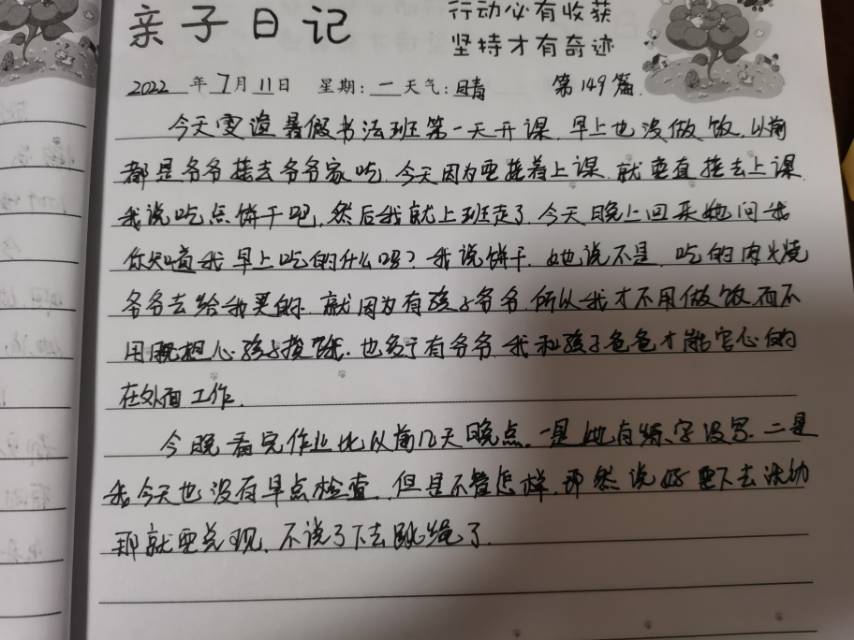 亲子日记
行动必有收获
坚持才有奇迹
2022年7月11日 星期:一 天气:晴 第149篇.
今天要送暑假书法班第一天开课.早上也没做饭.以前
都是爷爷接去爷爷家吃.今天因为要接着上课.就要直接去上课
我说吃点饼干吧.然后我就上班走了.今天晚上回来她问我
你知道我早上吃的什么吗?我说饼干.她说不是.吃的肉火烧
爷爷去给我买的.就因为有孩子爷爷.所以我才不用做饭.而不
用担心孩子挨饿.也多亏有爷爷.我和孩子爸爸才能安心的
在外面工作.
今晚看完作业比以前几天晚点.一是她有练字没写.二是
我今天也没有早点检查.但是不管怎样.那然说好要下去活动
那就要兑现.不说了下去跳绳了.